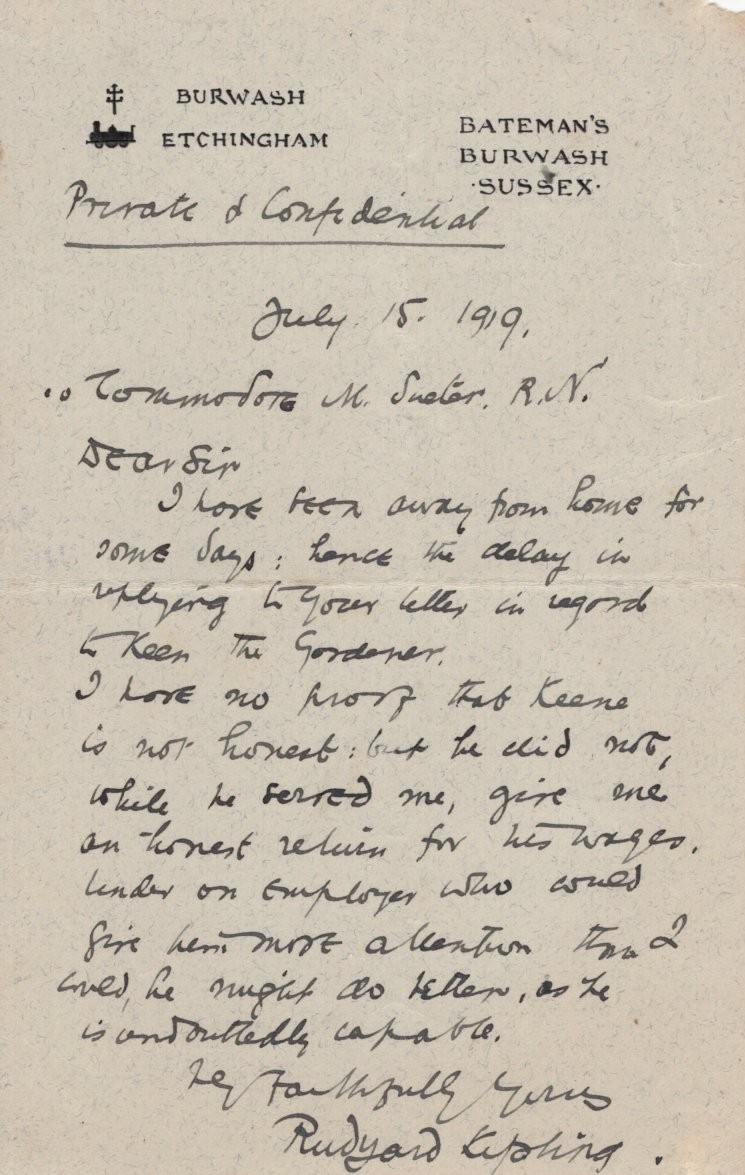 BURWASH
ETCHINGHAM
BATEMAN'S
BURWASH
·SUSSEX·
Private & Confidential
July. 15. 1919.
Commodore M. Sueter. R.N.
Dear Sir
I have been away from home for
some days: hence the delay in
replying to your letter in regard
to Keen the Gardener.
I have no proof that Keene
is not honest: but he did not,
while he served me, give me
an honest return for his wages.
Under an employer who could
give him more attention than I
could, he might do better, as he
is undoubtedly capable.
Faithfully Yours
Rudyard Kipling.